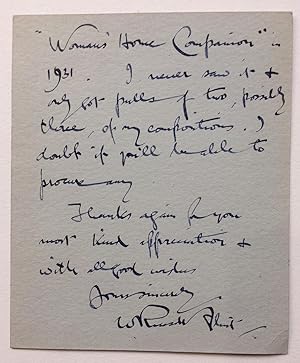 "Woman's Home Companion" in
1931. I never saw it &
only got pulls of two, possibly
three, of my compositions. I
doubt if you'll be able to
procure any
Thanks again for your
most kind appreciation &
with all good wishes
Yours sincerely
W Russell Flint